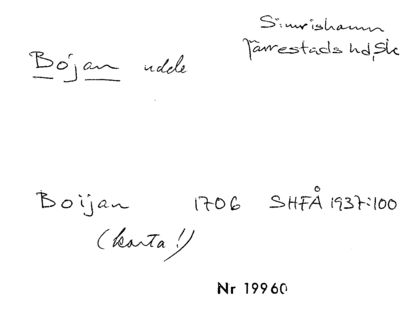 Simrishamn
Järrestads hd, Sk
Böjan udde
Boijan 1706 SHFÅ 1937:100
(karta!)
Nr 19960